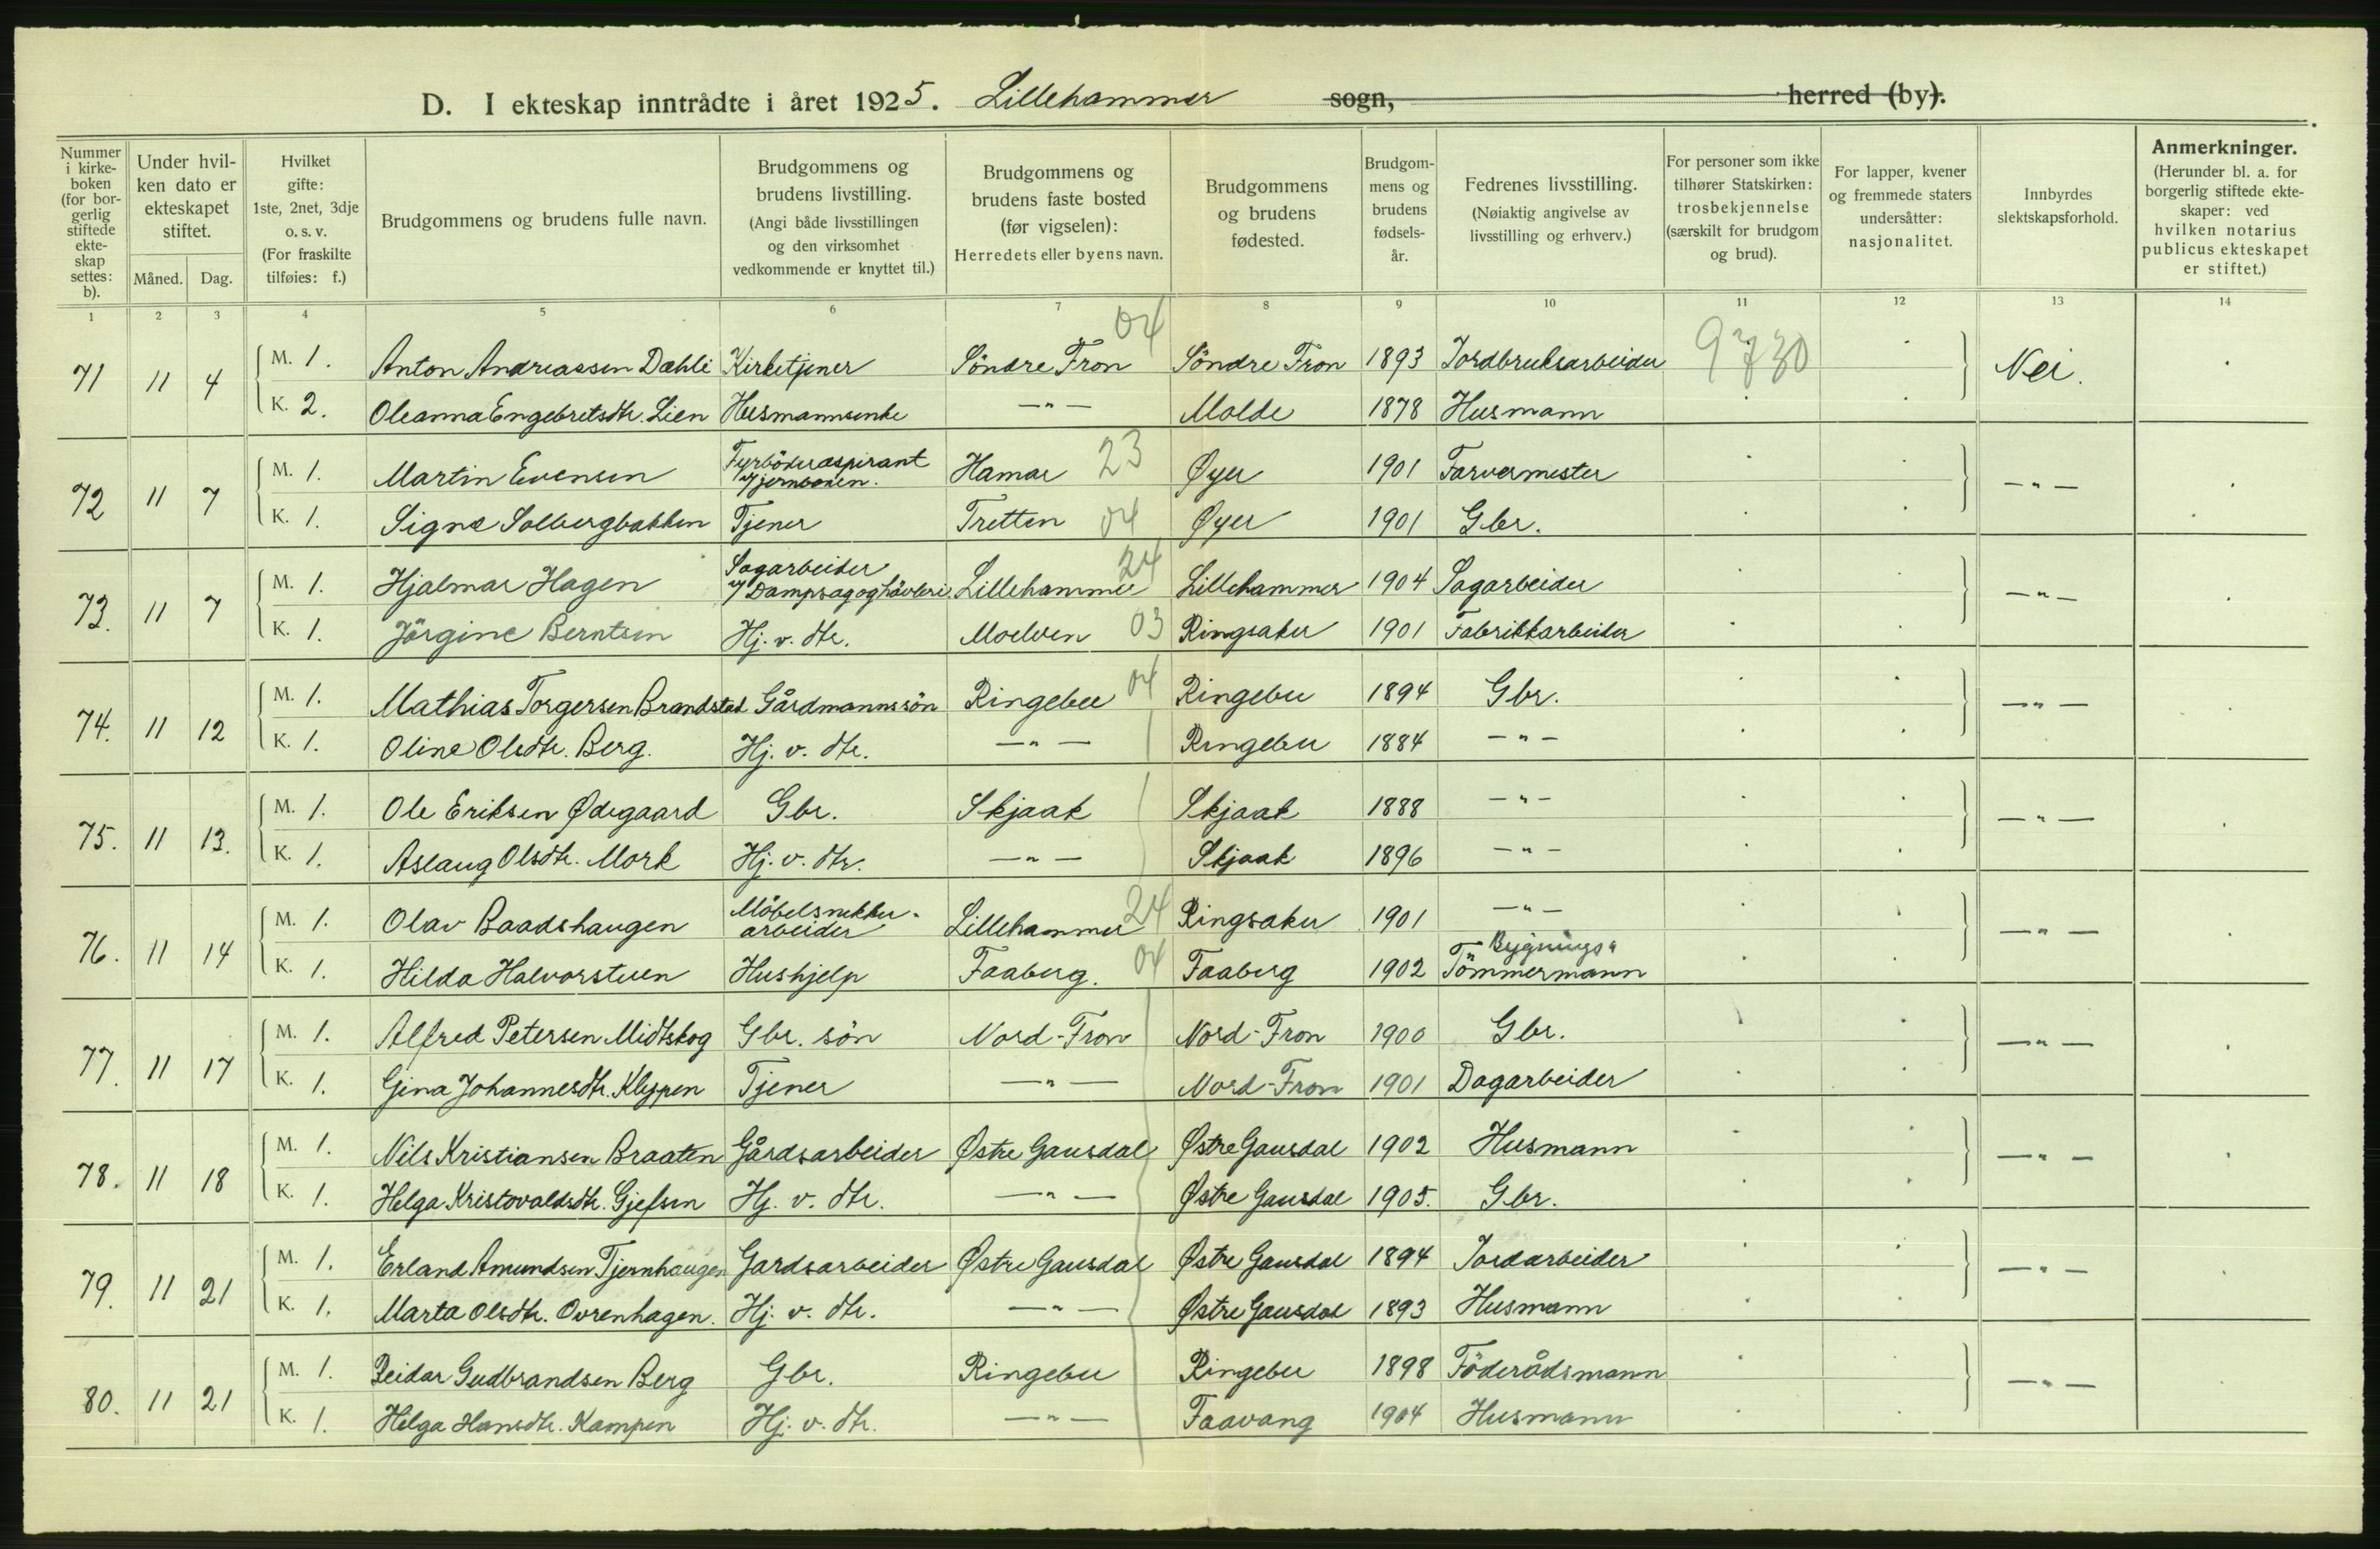 D. I ekteskap inntrådte i året 1925. Lillehammer sogn, herred (by).
Nummer i kirkeboken (for borgerlig stiftede ekteskap settes: b).
Under hvilken dato er ekteskapet stiftet. Måned. Dag.
Hvilket gifte: 1ste, 2net, 3dje o. s. v. (For fraskilte tilføies: f.)
Brudgommens og brudens fulle navn.
Brudgommens og brudens livstilling. (Angi både livsstillingen og den virksomhet vedkommende er knyttet til.)
Brudgommens og brudens faste bosted (før vigselen): Herredets eller byens navn.
Brudgommens og brudens fødested.
Brudgommens og brudens fødselsår.
Fedrenes livsstilling. (Nøiaktig angivelse av livsstilling og erhverv.)
For personer som ikke tilhører Statskirken: trosbekjennelse (særskilt for brudgom og brud).
For lapper, kvener og fremmede staters undersåtter: nasjonalitet.
Innbyrdes slektskapsforhold.
Anmerkninger. (Herunder bl. a. for borgerlig stiftede ekteskaper: ved hvilken notarius publicus ekteskapet er stiftet.)
1 2 3 4 5 6 7 8 9 10 11 12 13 14
04
71 11 4 M. 1. Anton Andreassen Dæhli Kirketjener Söndre Fron Söndre Fron 1893 Jordbruksarbeider 9730 Nei.
K. 2. Oleanna Engebretsdtr. Lien Husmannsenke —"— Molde 1878 Husmann
72 11 7 M. 1. Martin Evensen Fyrböteraspirant v/jernbanen. Hamar 23 Øyer 1901 Farvermester —"—
K. 1. Signe Solbergbakken Tjener Tretten 04 Øyer 1901 Gbr.
73. 11 7 M. 1. Hjalmar Hagen Sagarbeider v/Dampsag og hövleri Lillehammer 24 Lillehammer 1904 Sagarbeider —"—
K. 1. Jörgine Berntsen Hj. v. dtr. Moelven 03 Ringsaker 1901 Fabrikkarbeider
74. 11 12 M. 1. Mathias Torgersen Brandstad Gårdmannssön Ringebu 04 Ringebu 1894 Gbr. —"—
K. 1. Oline Olsdtr. Berg. Hj. v. dtr. —"— Ringebu 1884 —"—
75. 11 13. M. 1. Ole Eriksen Ødegaard Gbr. Skjaak Skjaak 1888 —"— —"—
K. 1. Aslaug Olsdtr. Mork Hj. v. dtr. —"— Skjaak 1896 —"—
76. 11 14 M. 1. Olav Baadshaugen Möbelsnekkerarbeider Lillehammer 24 Ringsaker 1901 —"— —"—
K. 1. Hilda Halvorstuen Hushjelp Faaberg. 04 Faaberg 1902 Bygnings" Tömmermann
77. 11 17 M. 1. Alfred Petersen Midtskog Gbr. sön Nord-Fron Nord-Fron 1900 Gbr. —"—
K. 1. Gina Johannesdtr. Kleppen Tjener —"— Nord-Fron 1901 Dagarbeider
78. 11 18 M. 1. Nils Kristiansen Braaten Gårdsarbeider Østre Gausdal Østre Gausdal 1902 Husmann —"—
K. 1. Helga Kristovaldsdtr. Gjefsen Hj. v. dtr. —"— Østre Gausdal 1905. Gbr.
79. 11 21 M. 1. Erland Amundsen Tjernhaugen Gardsarbeider Østre Gausdal Østre Gausdal 1894 Jordarbeider —"—
K. 1. Marta Olsdtr. Ovrenhagen. Hj. v. dtr. —"— Østre Gausdal 1893 Husmann
80. 11 21 M. 1. Reidar Gudbrandsen Berg Gbr. Ringebu Ringebu 1898 Föderådsmann —"—
K. 1. Helga Hansdtr. Kampen Hj. v. dtr. —"— Faavang 1904 Husmann